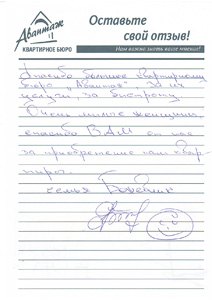 Авантаж
КВАРТИРНОЕ БЮРО
Оставьте
свой отзыв!
Нам важно знать ваше мнение!
Спасибо большое квартирному
бюро "Авантаж", за их
услуги, за быстроту.
Очень милые женщины,
спасибо ВАМ от нас
за приобретение нам квар-
тиры.
семья